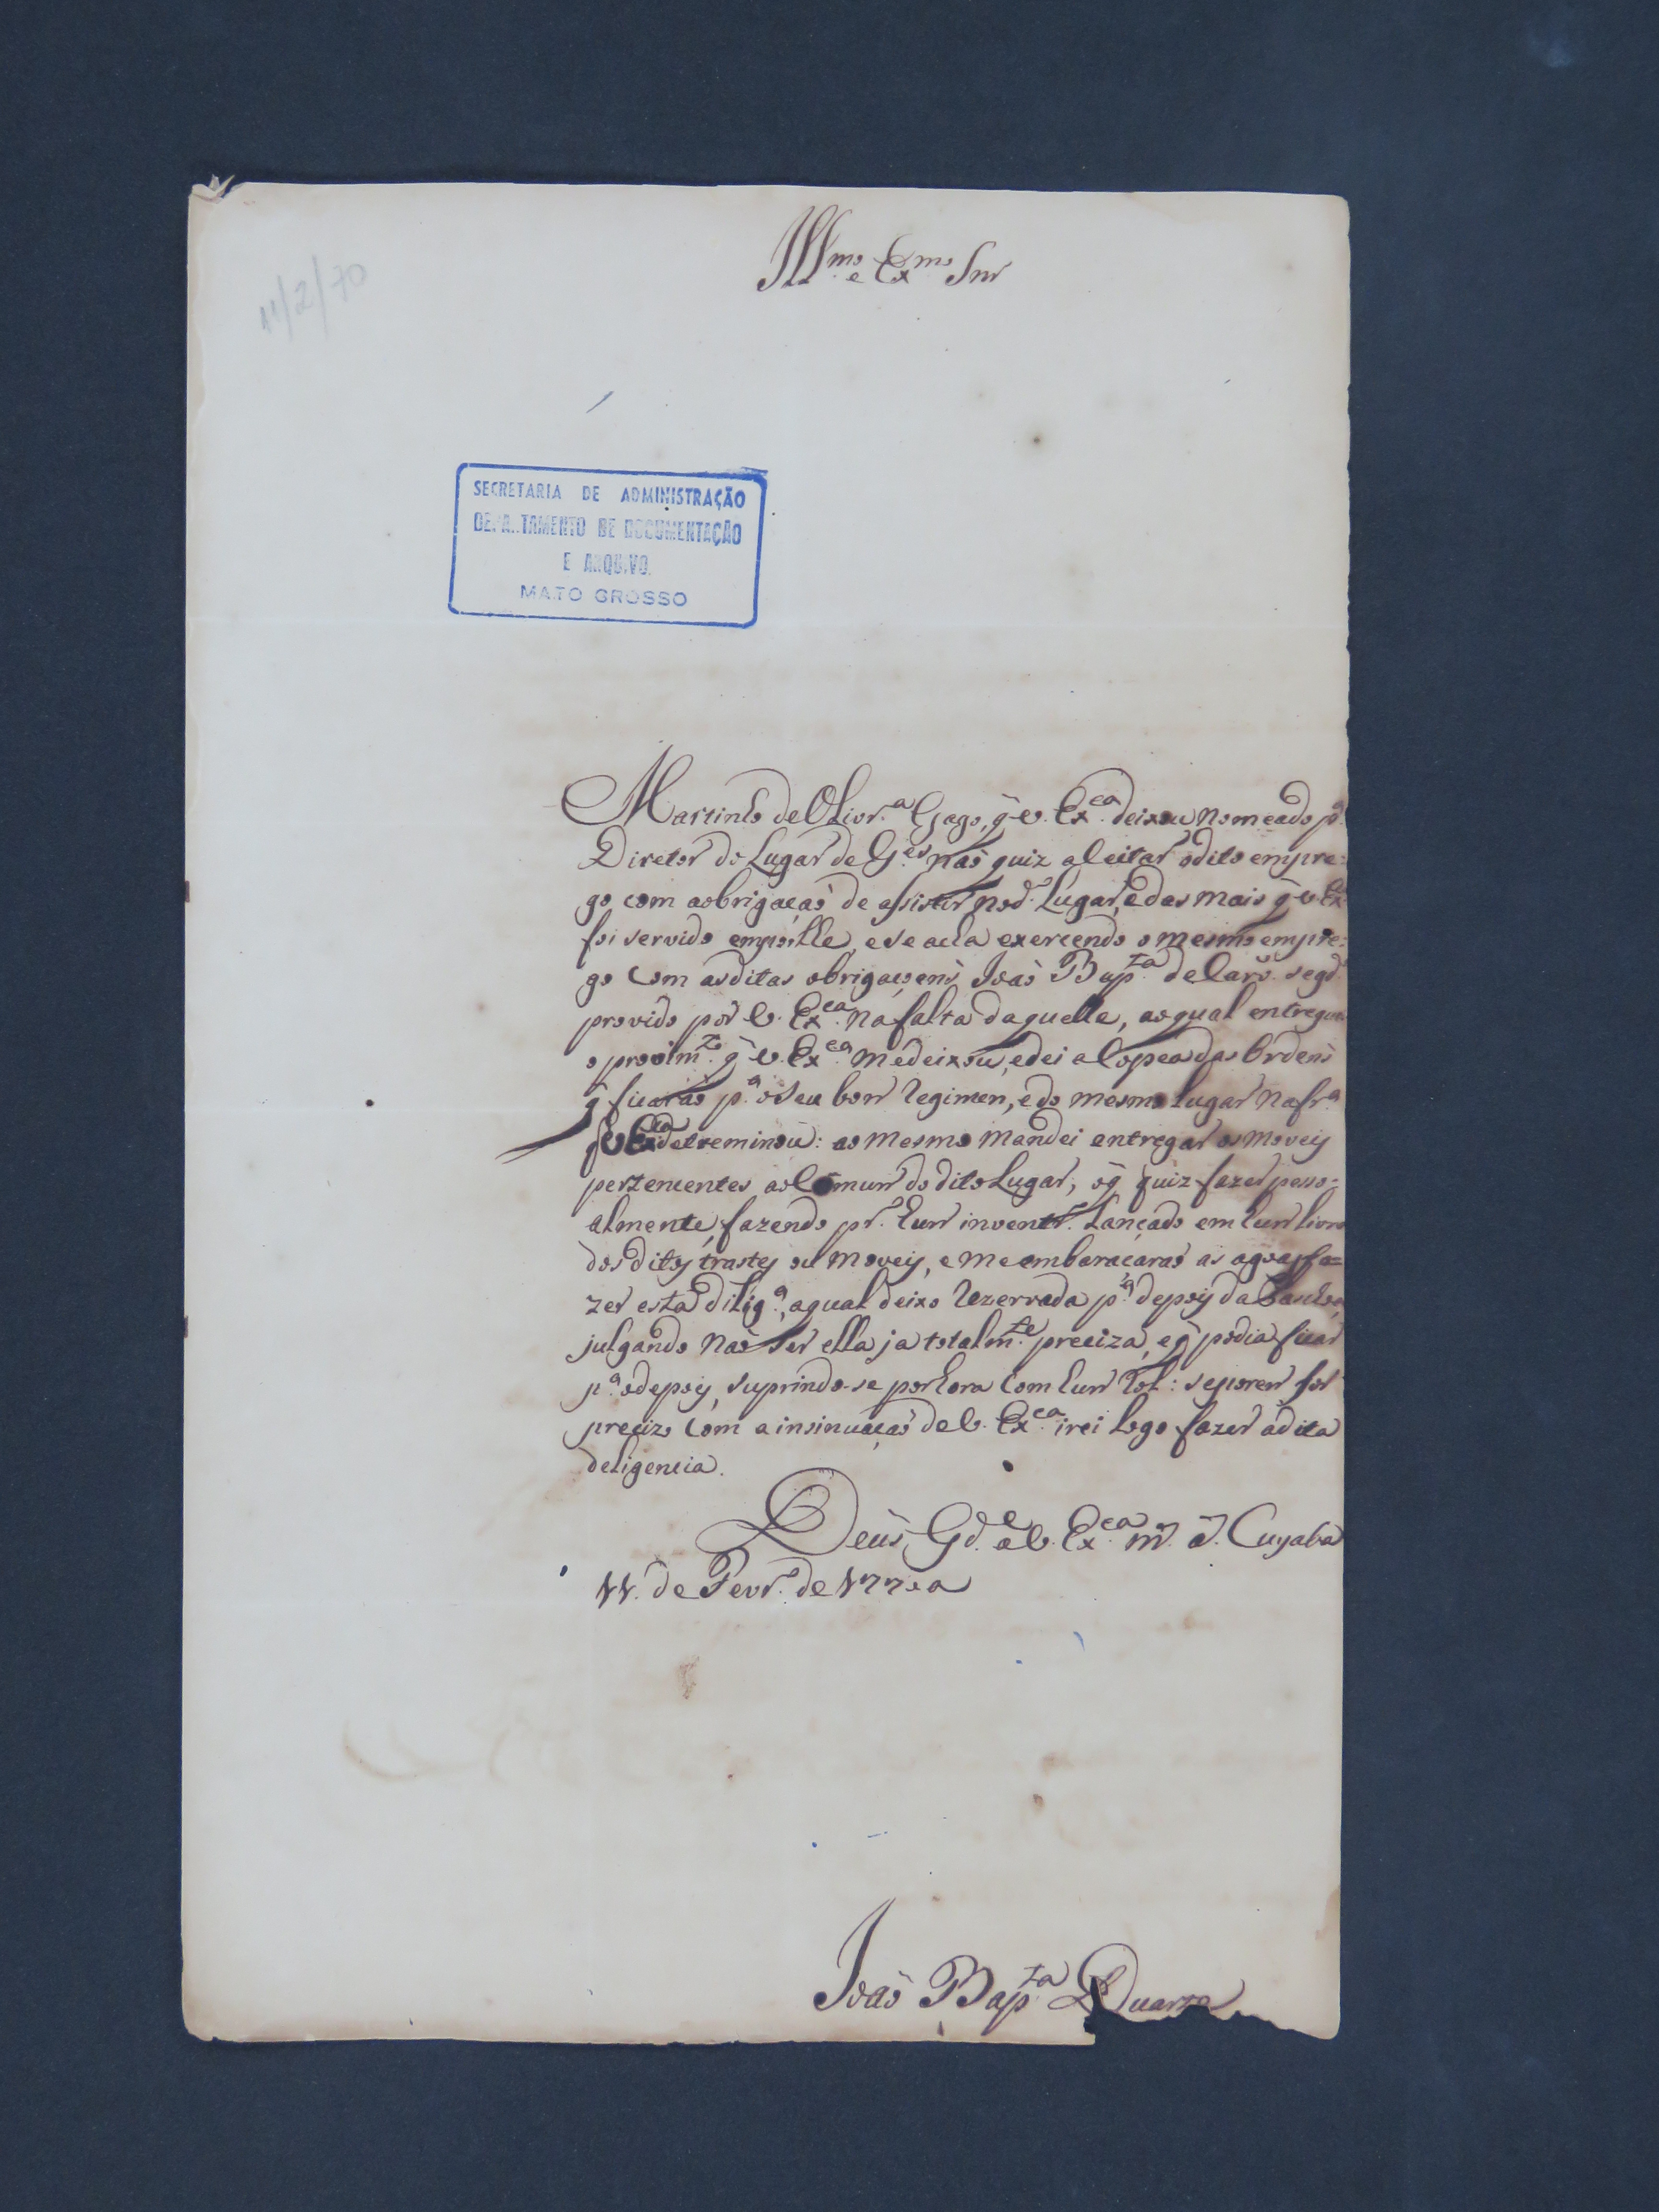 Illmo. e Exmo. Snr
11/2/70
SECRETARIA DE ADMINISTRAÇÃO
DEPA..TAMENTO DE DOCUMENTAÇÃO
E ARQUIVO.
MATO GROSSO
Martinho de Olivr.a Gago, q̃ V. Ex.ca deixou nomeado p.a
Diretor do Lugar de G.es naõ quiz aceitar odito empre=
go com aobrigaçaõ de assistir nod.o Lugar, e das mais q̃ V. Ex.ca
foi servido emporlhe, e se acha exercendo o mesmo empre=
go com as ditas obrigaçoens Joaõ Bap.ta de segd.o
provido por V. Ex.ca na falta daquelle, aoqual entreguei
o provim.to q̃ V. Ex.ca medeixou, edei a Copea das Ordens
q̃ ficaraõ p.a oseu bom Regimen, e do mesmo Lugar na fr.a
q̃ V Ex.ca detreminou: ao mesmo mandei entregar os moveis
pertencentes aoComum do dito Lugar, oq̃ quiz fazer pesso=
almente, fazendo pr. hum inventr.o Lançado em hum livro
dos ditos trastes ou moveis, e me embaraçaraõ as agoas fa=
zer esta dilig.a, aqual deixo Rezervada p.a depois da
julgando naõ ser ella ja totalm.te preciza, e q̃ podia ficar
p.a odepois, suprindo-se porhora Com hum Rol: seporem for
precizo Com a insinuaçaõ de V. Ex.ca irei logo fazer adita
deligencia.
Deus Gd.e a V. Ex.ca m.s a.s Cuyabá
11. de Fevr.o de 1770 a
Joaõ Bap.ta Duarte